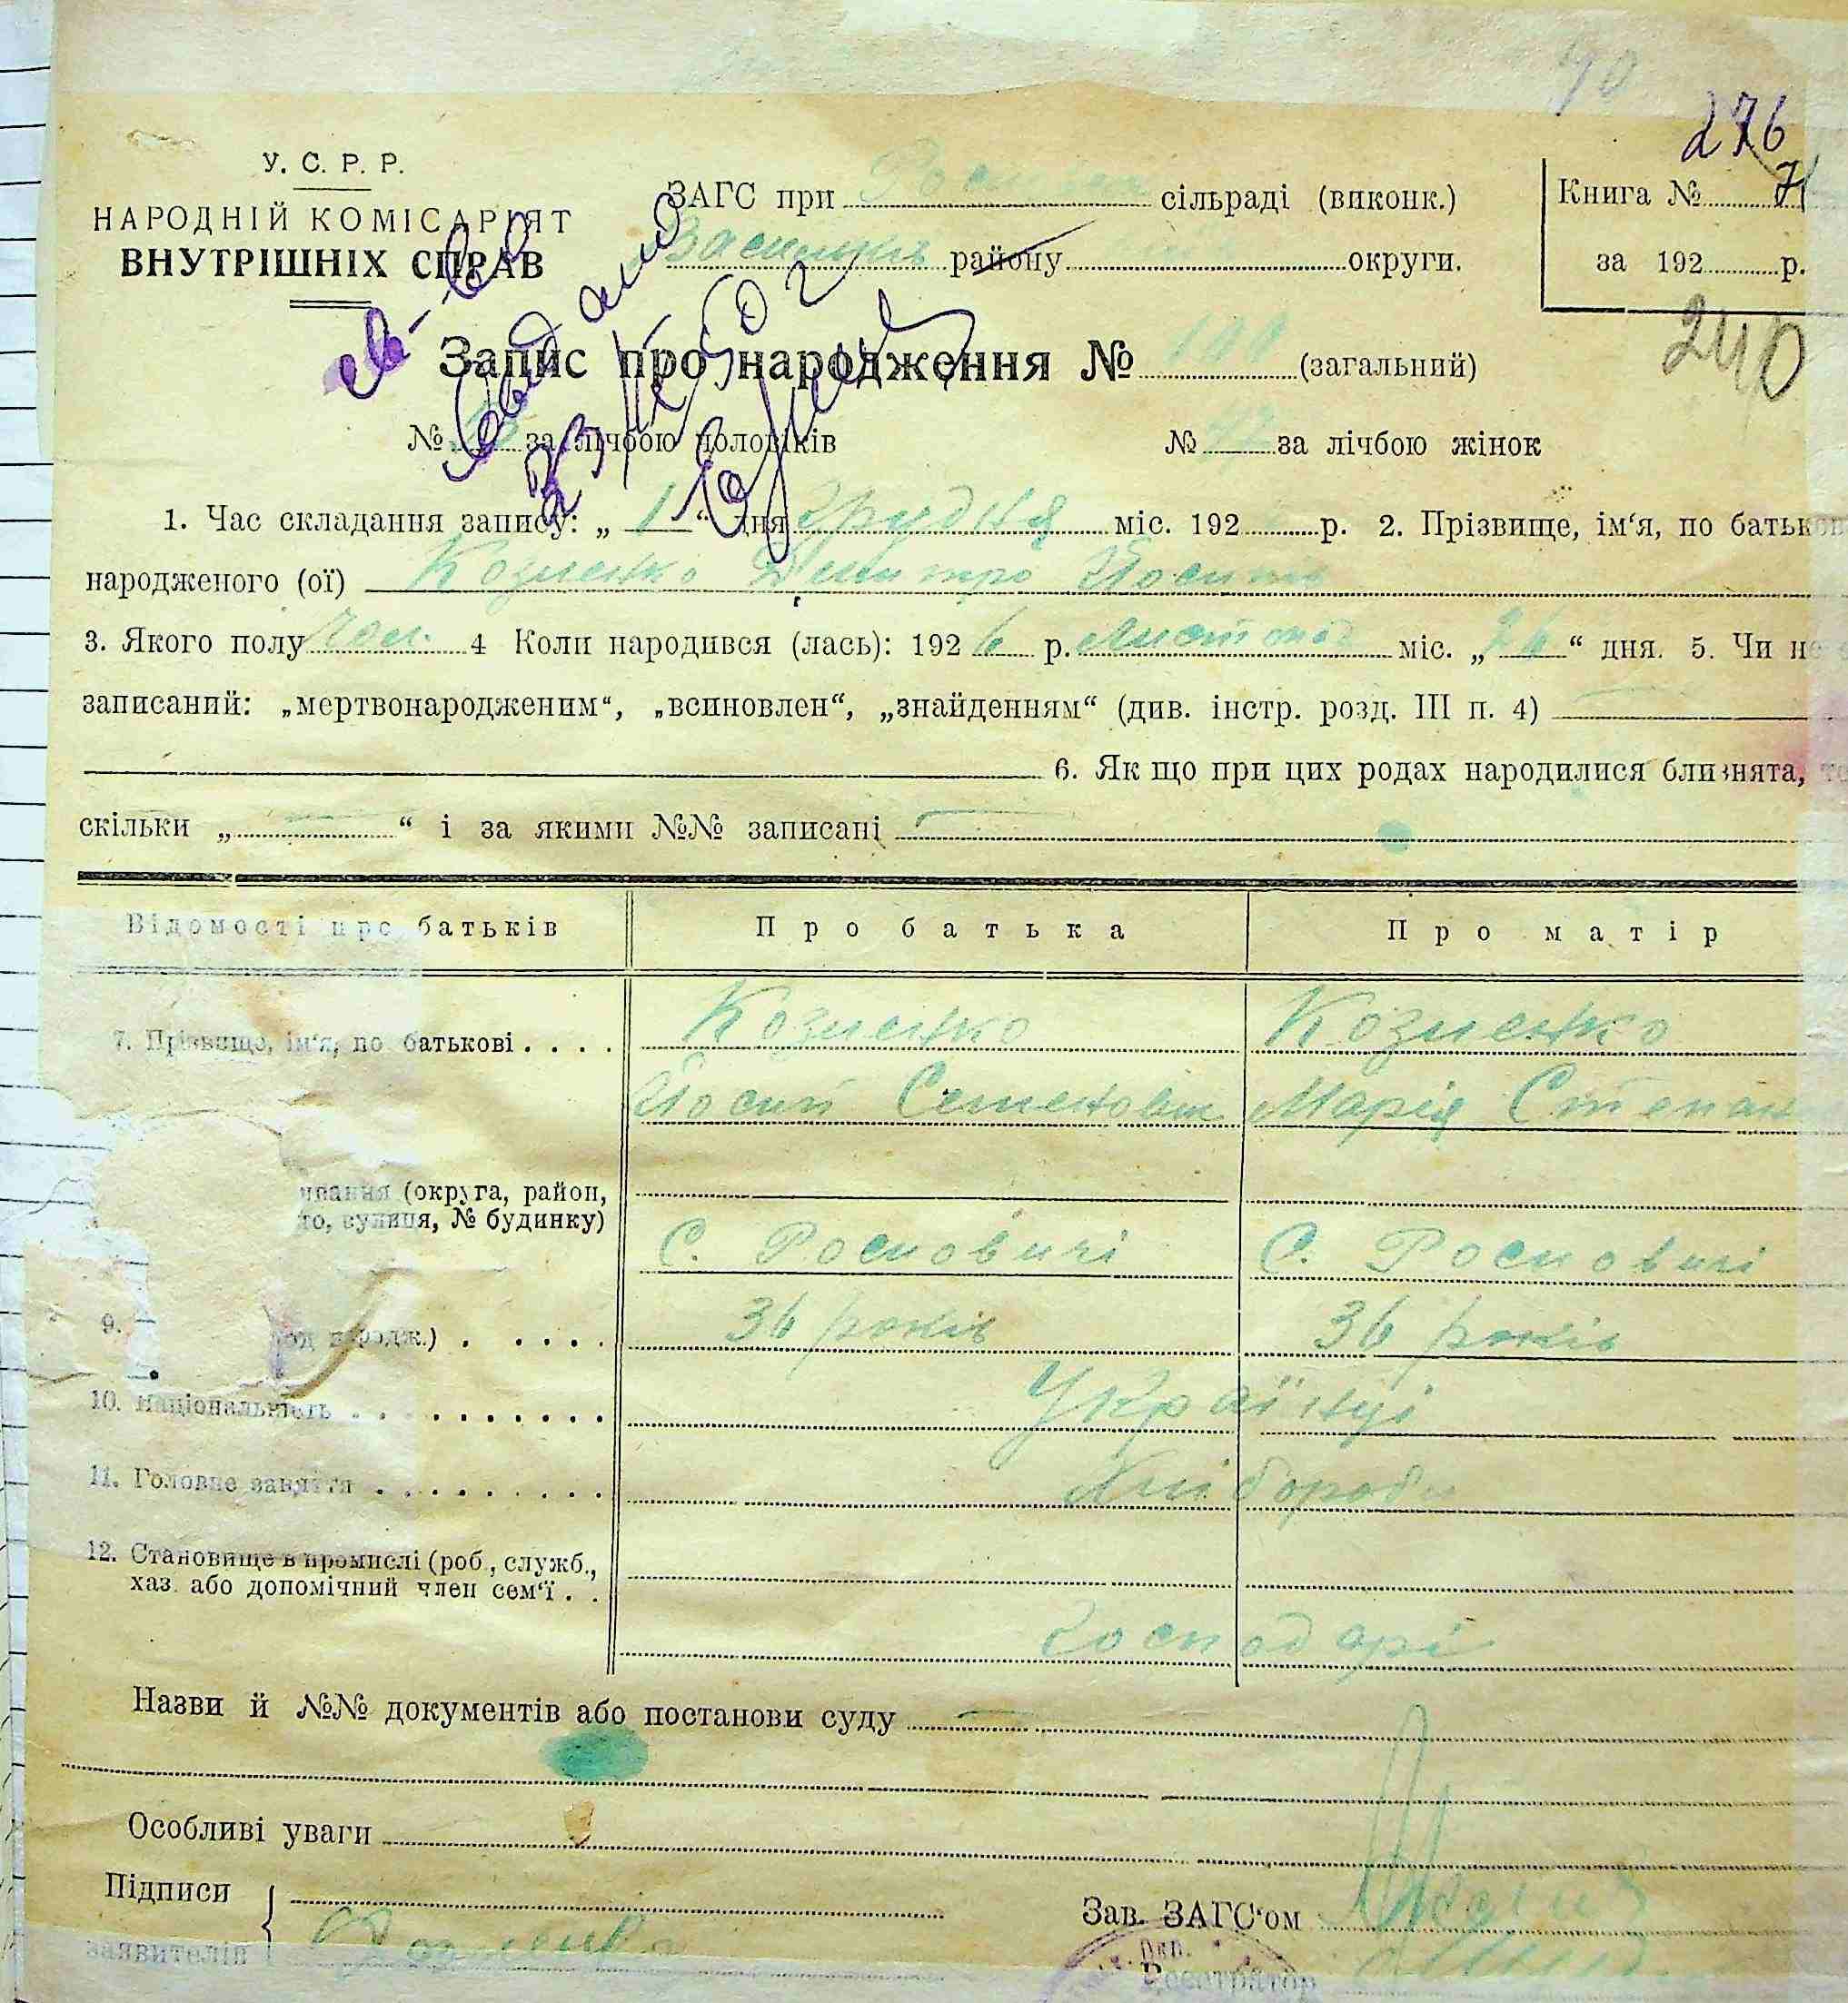 40
276
У. С. Р. Р.
НАРОДНІЙ КОМІСАРІЯТ
ВНУТРІШНІХ СПРАВ
ЗАГС при сільраді (виконк.)
району округи.
Книга № 71
за 192 р.
240
Запис про народження № (загальний)
№ за лічбою чоловіків № за лічбою жінок
1. Час складання запису: „ 1 “ дня грудня міс. 192 р. 2. Прізвище, ім‘я, по батьков
народженого (ої) Козиенко Дмитро Йосип
3. Якого полу чол. 4 Коли народився (лась): 192 6 р. Листопад міс. „ 26 “ дня. 5. Чи не
записаний: „мертвонародженим“, „всиновлен“, „знайденням“ (див. інстр. розд. III п. 4)
6. Як що при цих родах народилися близнята, то
скільки „ “ і за якими №№ записані
Відомості про батьків Про батька Про матір
7. Прізвище, ім‘я, по батькові . . . . Козиенко Козиенко
Йосип Семенович Марія Степан
(округа, район,
то, вулиця, № будинку)
С. Росновичі С. Росновичі
9. од народж.) . . . . . 36 років 36 років
10. Національність . . . . . . . . . . Українці
11. Головне заняття . . . . . . . . . Хлібороби
12. Становище в промислі (роб., служб.,
хаз. або допомічний член сем‘ї . .
Господарі
Назви й №№ документів або постанови суду
Особливі уваги
Підписи
заявителів
Зав. ЗАГС‘ом
Реєстратор